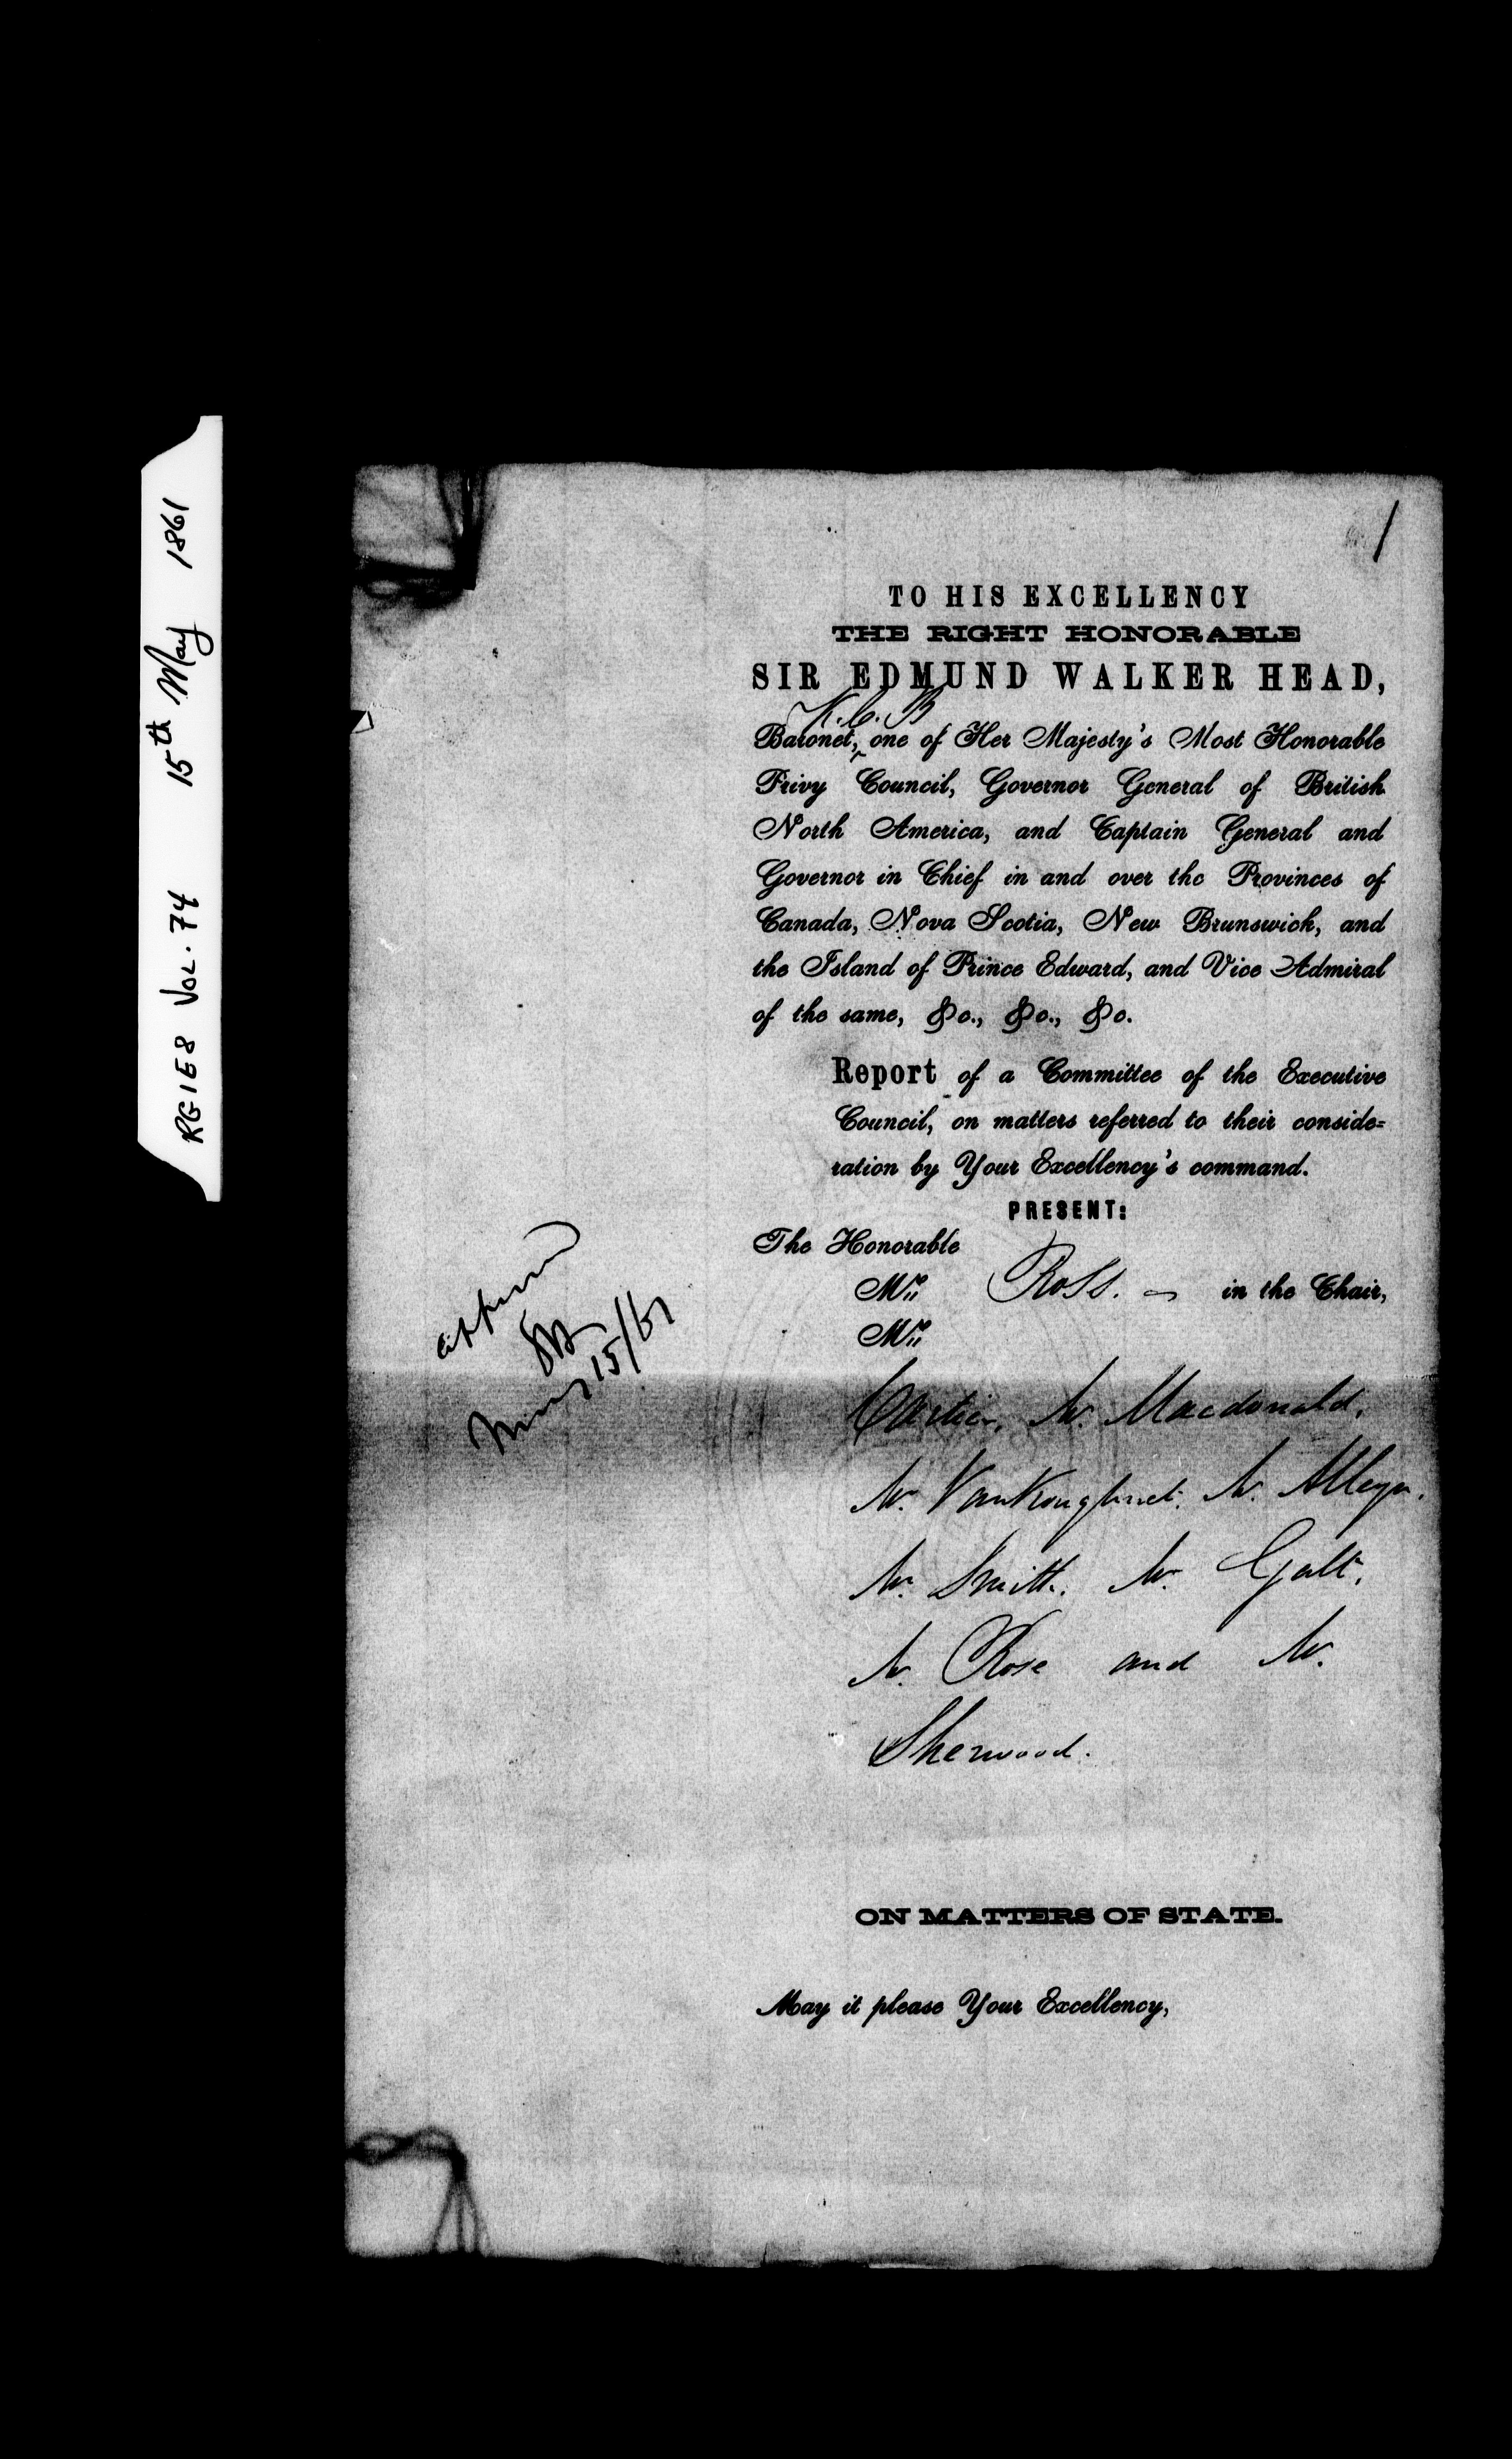 RG1E8 VOL. 74 15th May 1861
1
TO HIS EXCELLENCY
THE RIGHT HONORABLE
SIR EDMUND WALKER HEAD,
K.C.B
Baronet, one of Her Majesty's Most Honorable
Privy Council, Governor General of British
North America, and Captain General and
Governor in Chief in and over the Provinces of
Canada, Nova Scotia, New Brunswick, and
the Island of Prince Edward, and Vice Admiral
of the same, &c., &c., &c.
Report of a Committee of the Executive
Council, on matters referred to their conside=
ration by Your Excellency's command.
PRESENT:
The Honorable
Mr. Ross. in the Chair,
Mr.
Cartier, Mr. Macdonald,
Mr. VanKoughnet, Mr. Alleyn,
Mr. Smith, Mr. Galt,
Mr. Rose and Mr.
Sherwood.
approved
May 15/61
ON MATTERS OF STATE.
May it please Your Excellency,